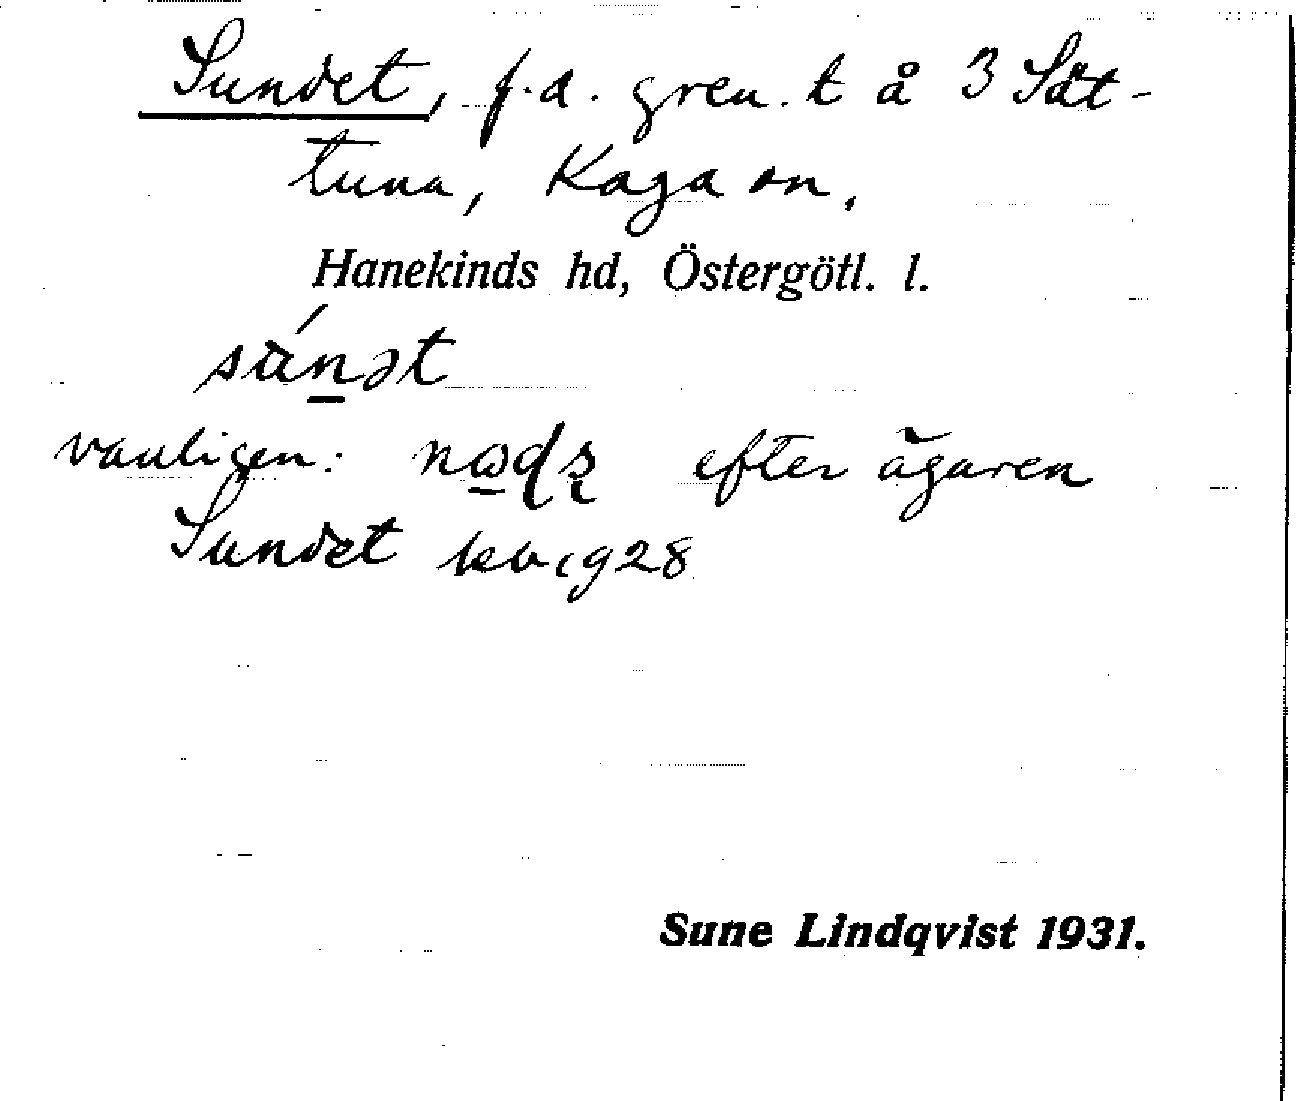 Sundet, f.d. gren. t å 3 Sät-
tuna, Kaga sn.
Hanekinds hd, Östergötl. l.
súnət
vanligen: efter ägaren
Sundet kv 1928
Sune Lindqvist 1931.